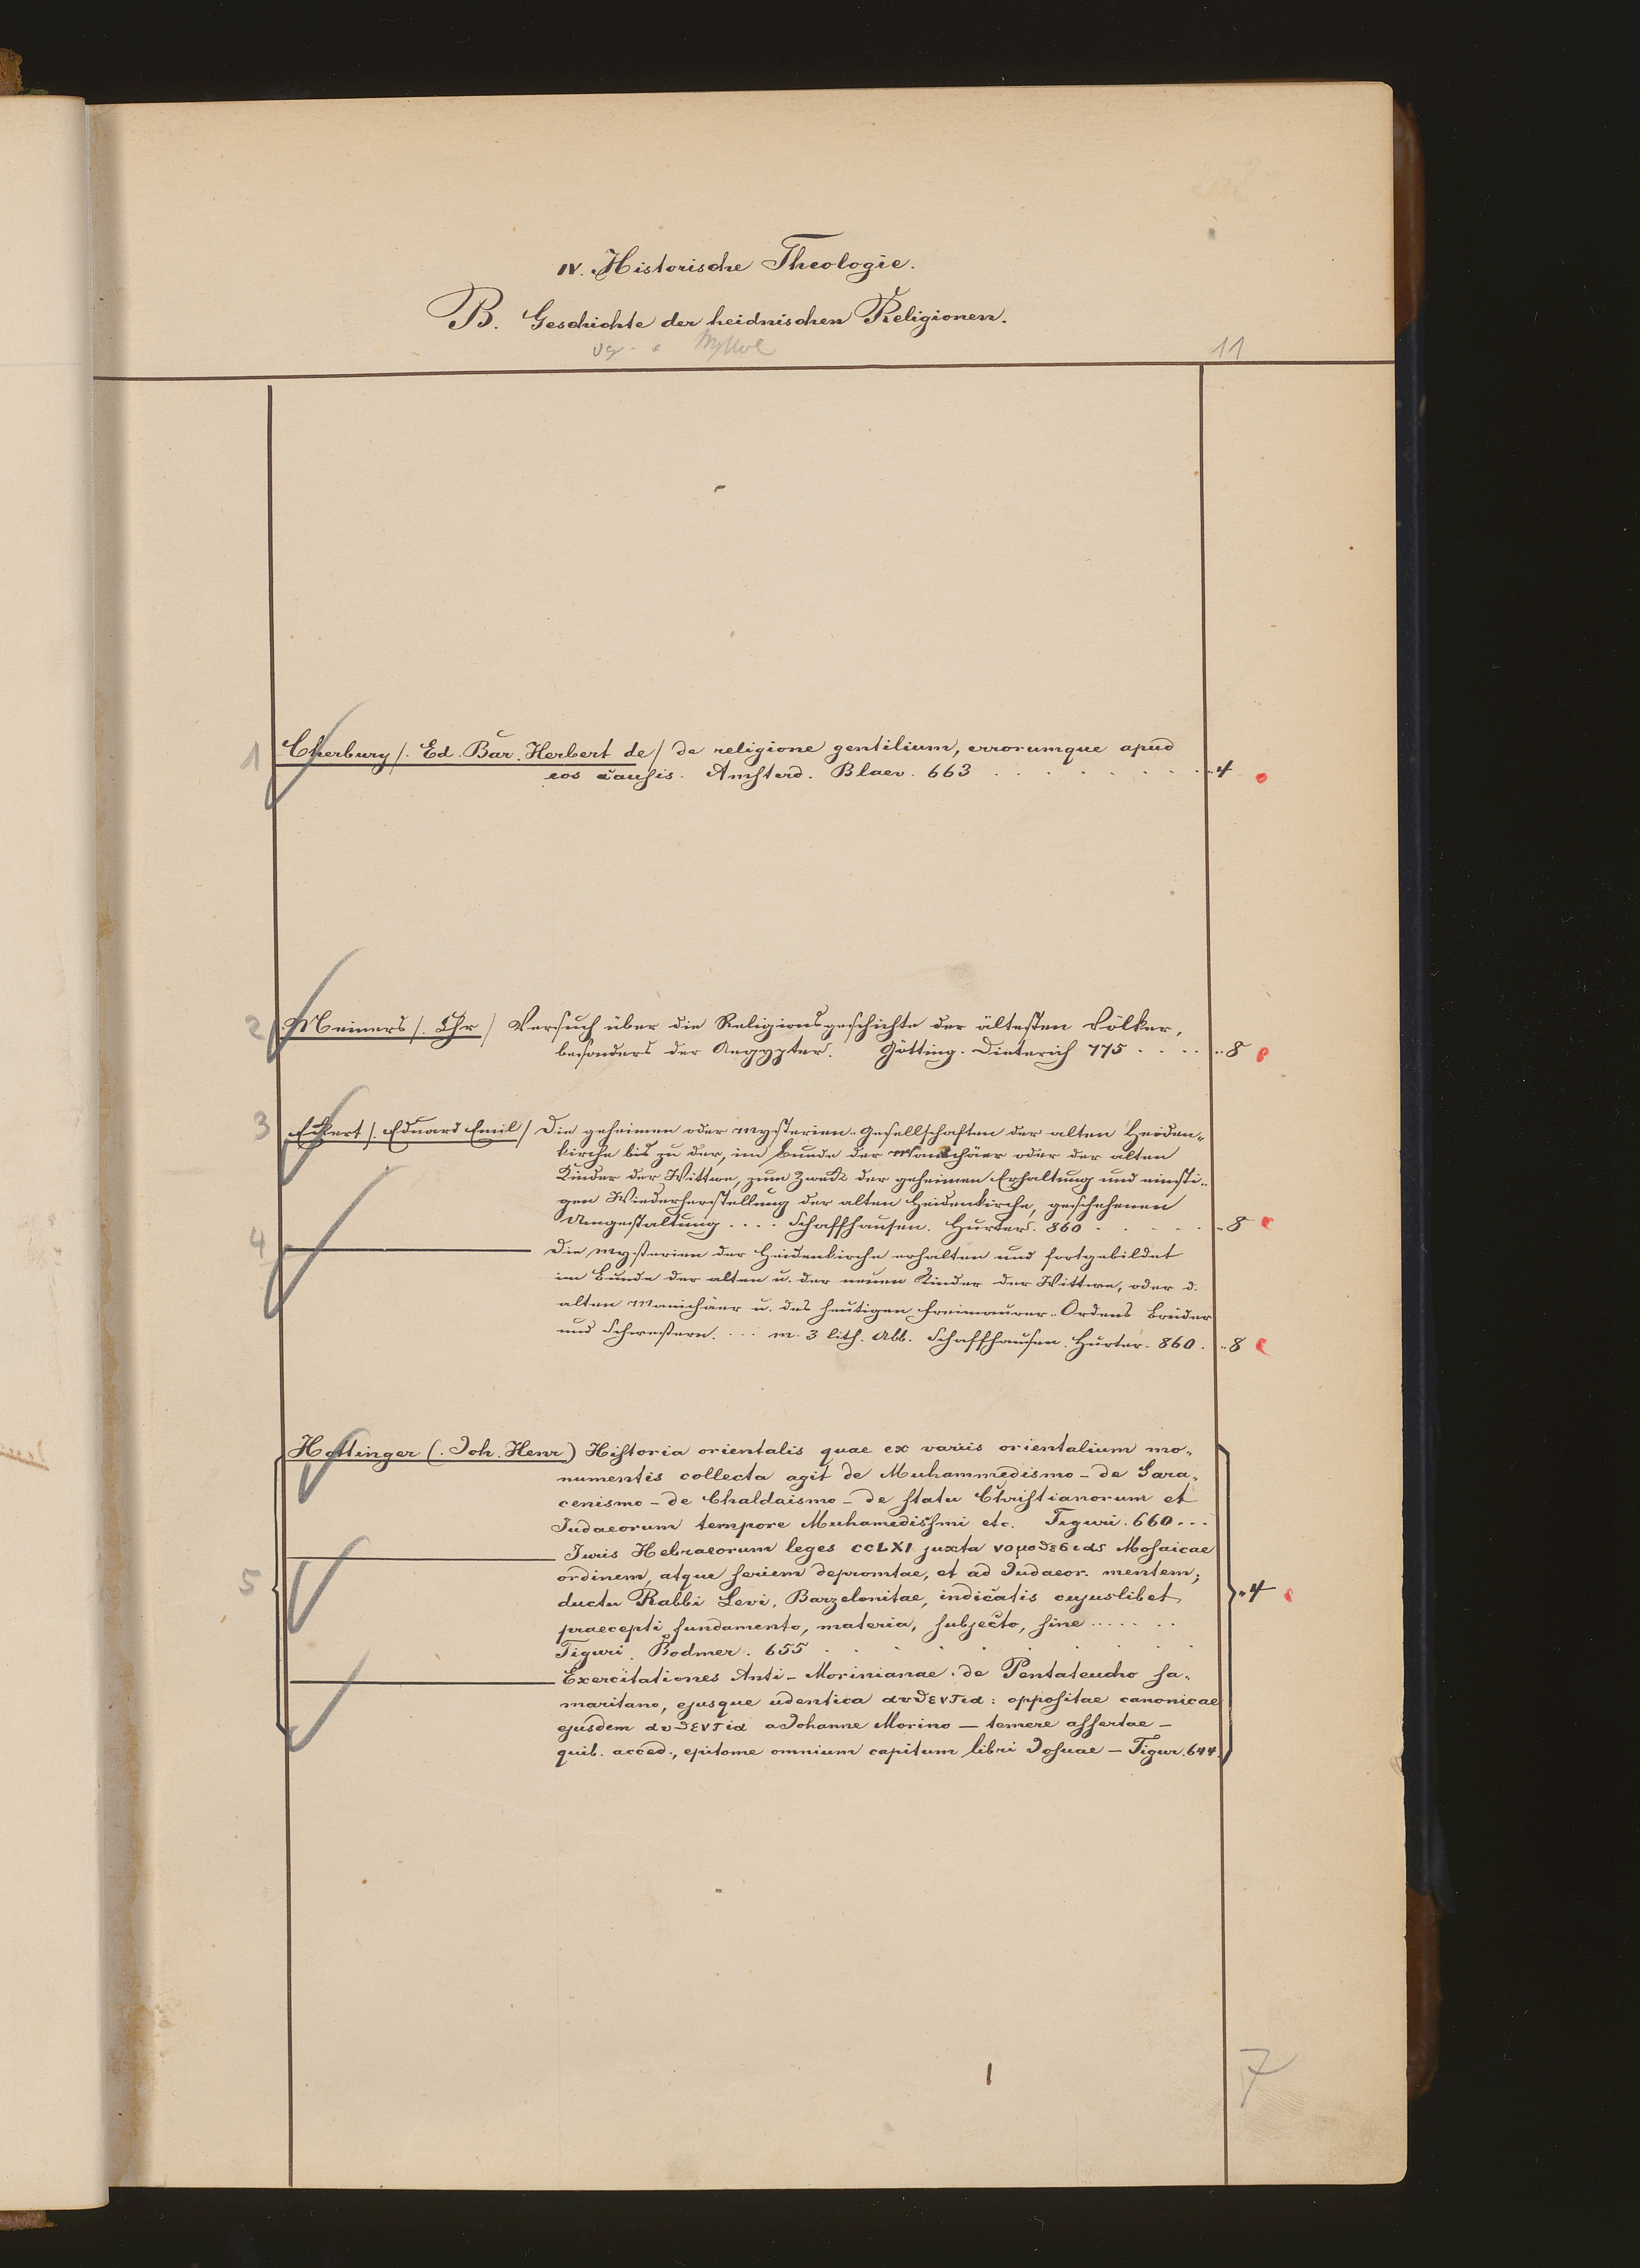 IV. Historische Theologie.
B. Geschichte der heidnischen Religionen.
11
1 Cherbury /. Ed. Bar. Herbert de / de religione gentilium, errorumque apud
eos causis. Amsterd. Blaev. 663 . . . . . . . . „4
2 Meiners /. Chr / Versuch über die Religionsgeschichte der ältesten Völker,
besonders der Aegypter. Götting. Dieterich 775 . . . . „8
3 Eckert /. Eduard Emil / Die geheimen oder Mysterien-Gesellschaften der alten Heiden-
kirche bis zu der, im Bunde der Manichäer oder der alten
Kinder der Wittwe, zum Zweck der geheimen Erhaltung und einsti-
gen Wiederherstellung der alten Heidenkirche, geschehenen
Umgestaltung . . . . Schaffhausen. Hurter. 860 . . . . . „8
4 ——— Die Mysterien der Heidenkirche erhalten und fortgebildet
im Bunde der alten u. der neuen Kinder der Wittwe, oder d.
alten Manichäer u. des heutigen Freimaurer-Ordens Brüder
und Schwestern. . . . m. 3 lith. Abb. Schaffhausen. Hurter. 860 . „8
Hottinger (. Joh. Henr.) Historia orientalis quae ex variis orientalium mo-
numentis collecta agit de Muhammedismo - de Sara-
cenismo - de Chaldaismo - de statu Christianorum et
Judaeorum tempore Muhamedissmi etc. Tiguri. 660 . . .
——— Juris Hebraeorum leges CCLXI juxta νομοθεσιας Mosaicae
5 ordinem, atque seriem depromtae, et ad Judaeor. mentem; „4
ductu Rabbi Levi, Barzelonitae, indicatis cujuslibet
praecepti fundamento, materia, subjecto, fine . . . . . . .
Tiguri. Bodmer. 655 . . . . . . .
——— Exercitationes Anti-Morinianae. de Pentateucho sa-
maritano, ejusque udentica αυθεντια: oppositae canonicae
ejusdem αυθεντια a Johanne Morino — temere assertae —
quib. acced., epitome omnium capitum libri Josuae — Tigur. 644.
7